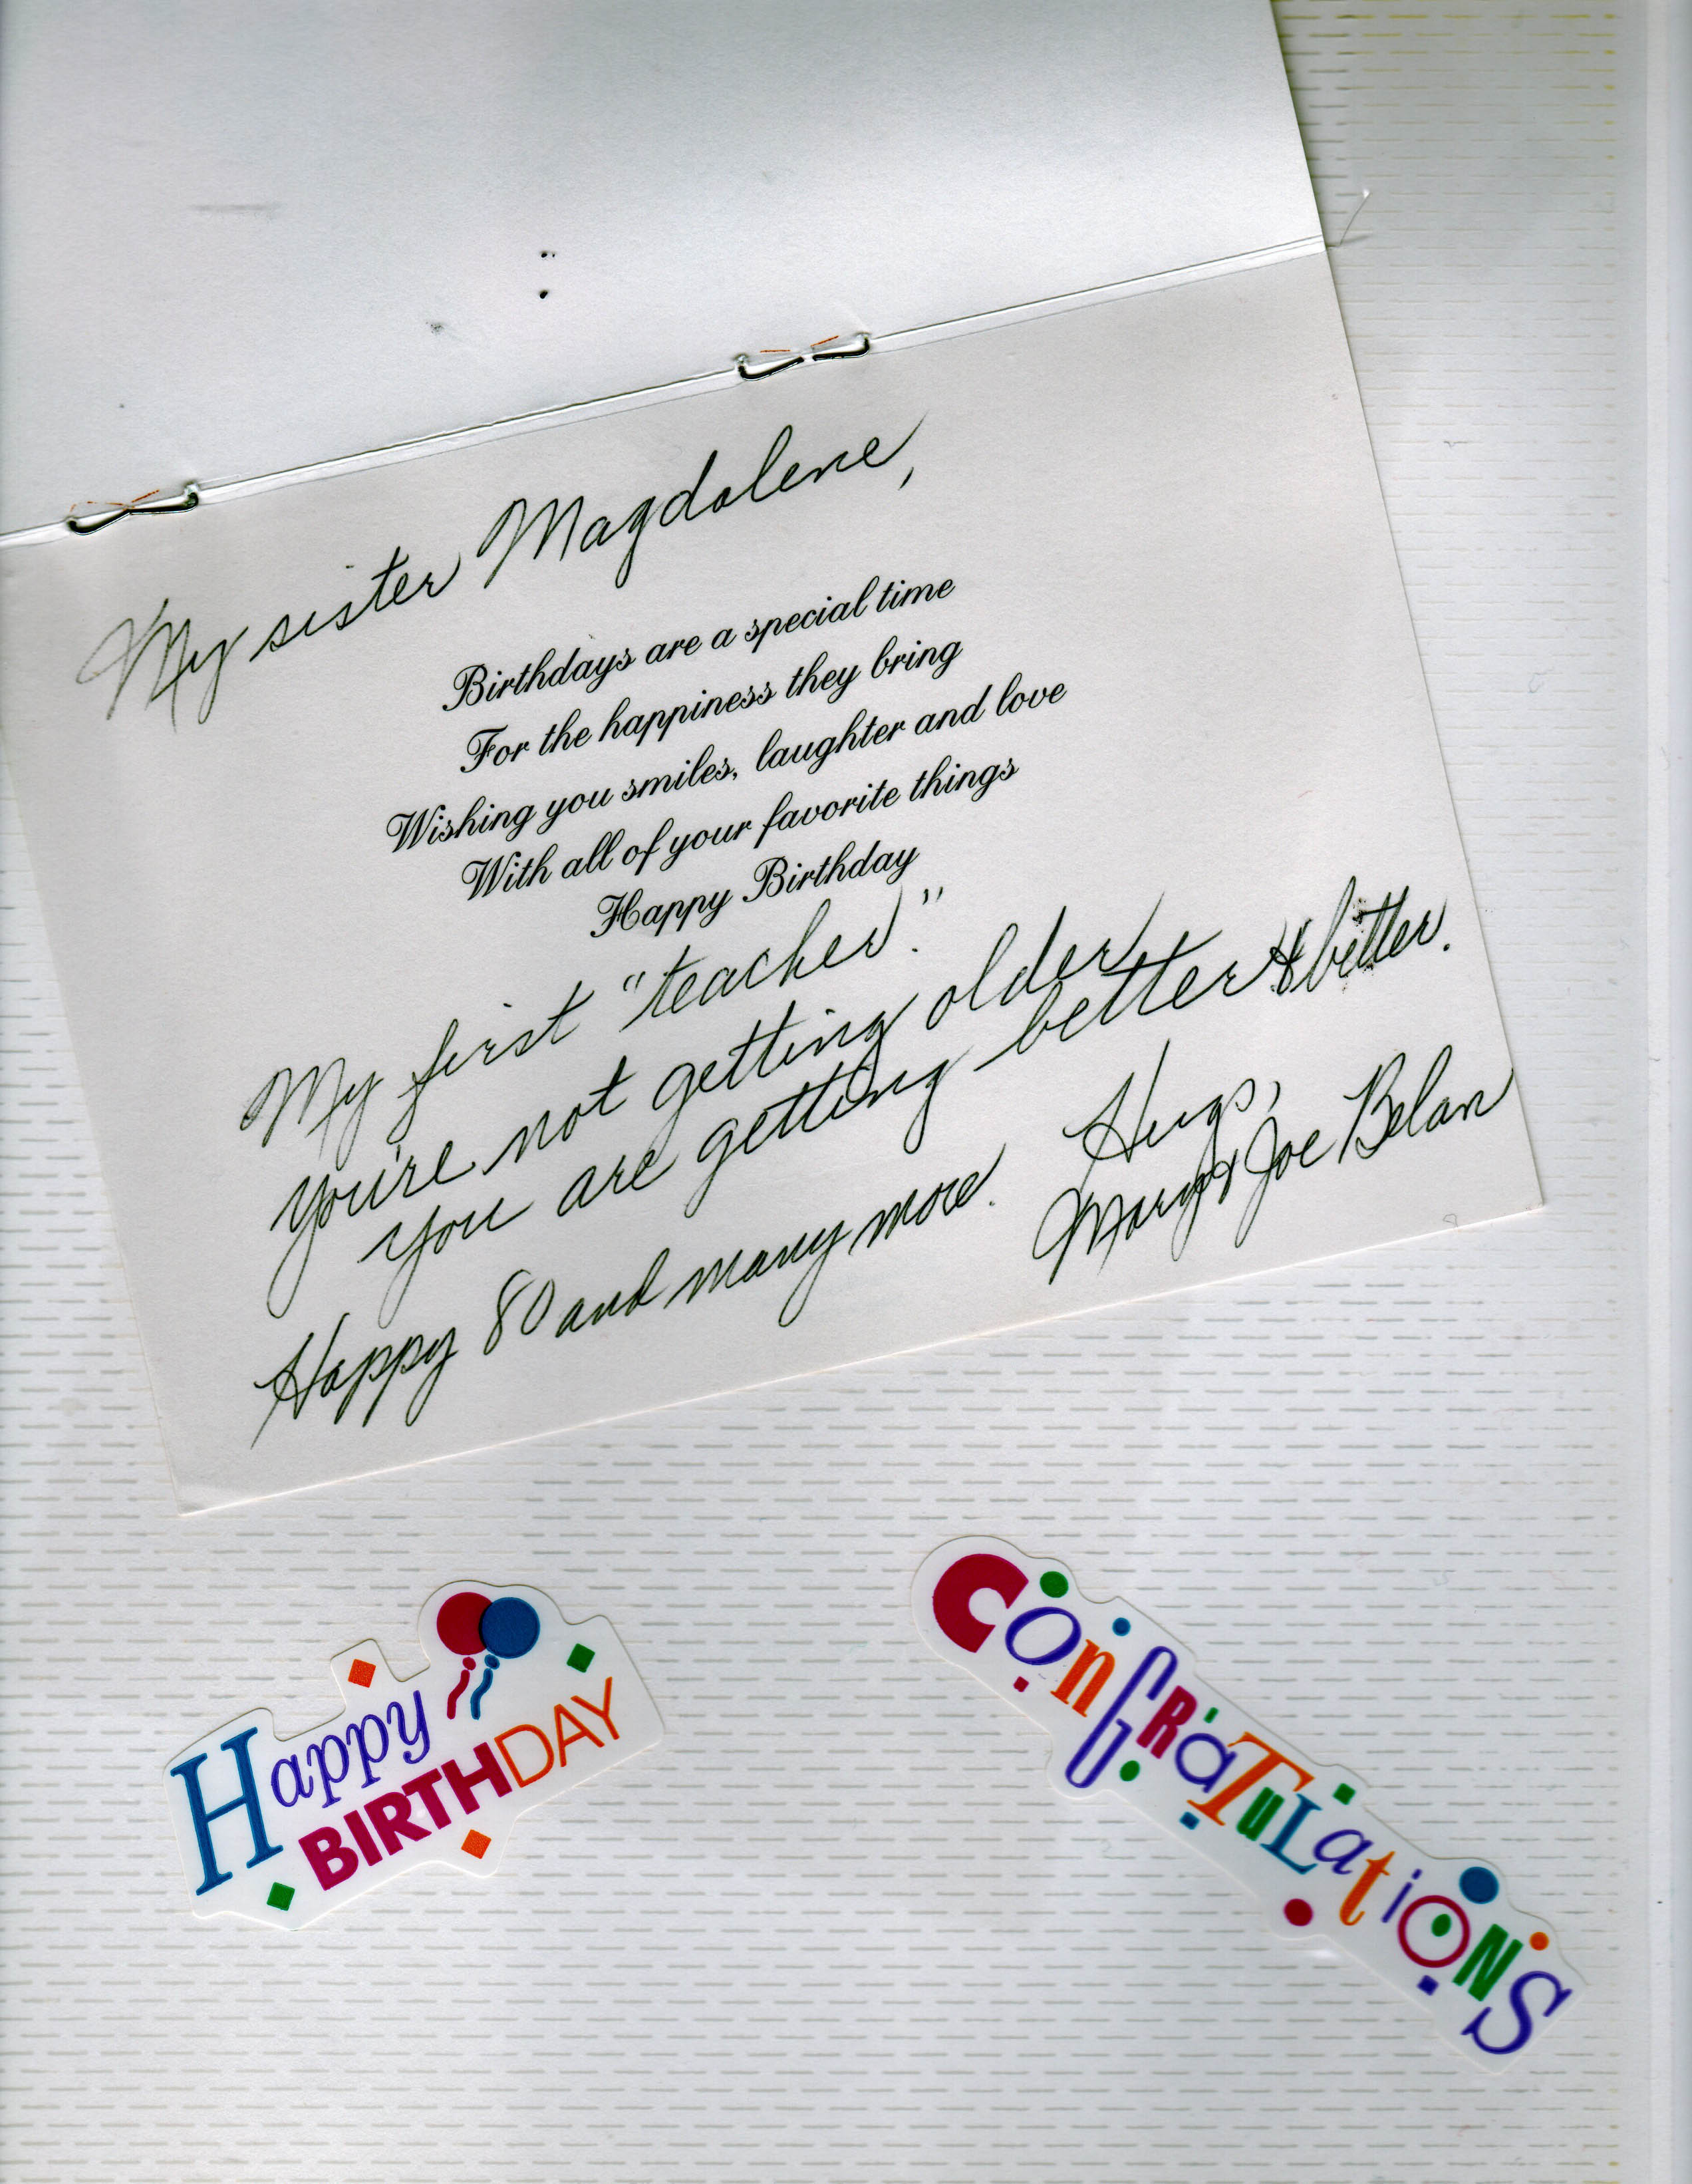 My sister Magdalene,
Birthdays are a special time
For the happiness they bring
Wishing you smiles, laughter and love
With all of your favorite things
Happy Birthday
My first "teacher."
You're not getting older
you are getting better & better.
Happy 80 and many more.
Hugs,
Mary & Joe Belan
Happy
BIRTHDAY
CONGRATULATIONS